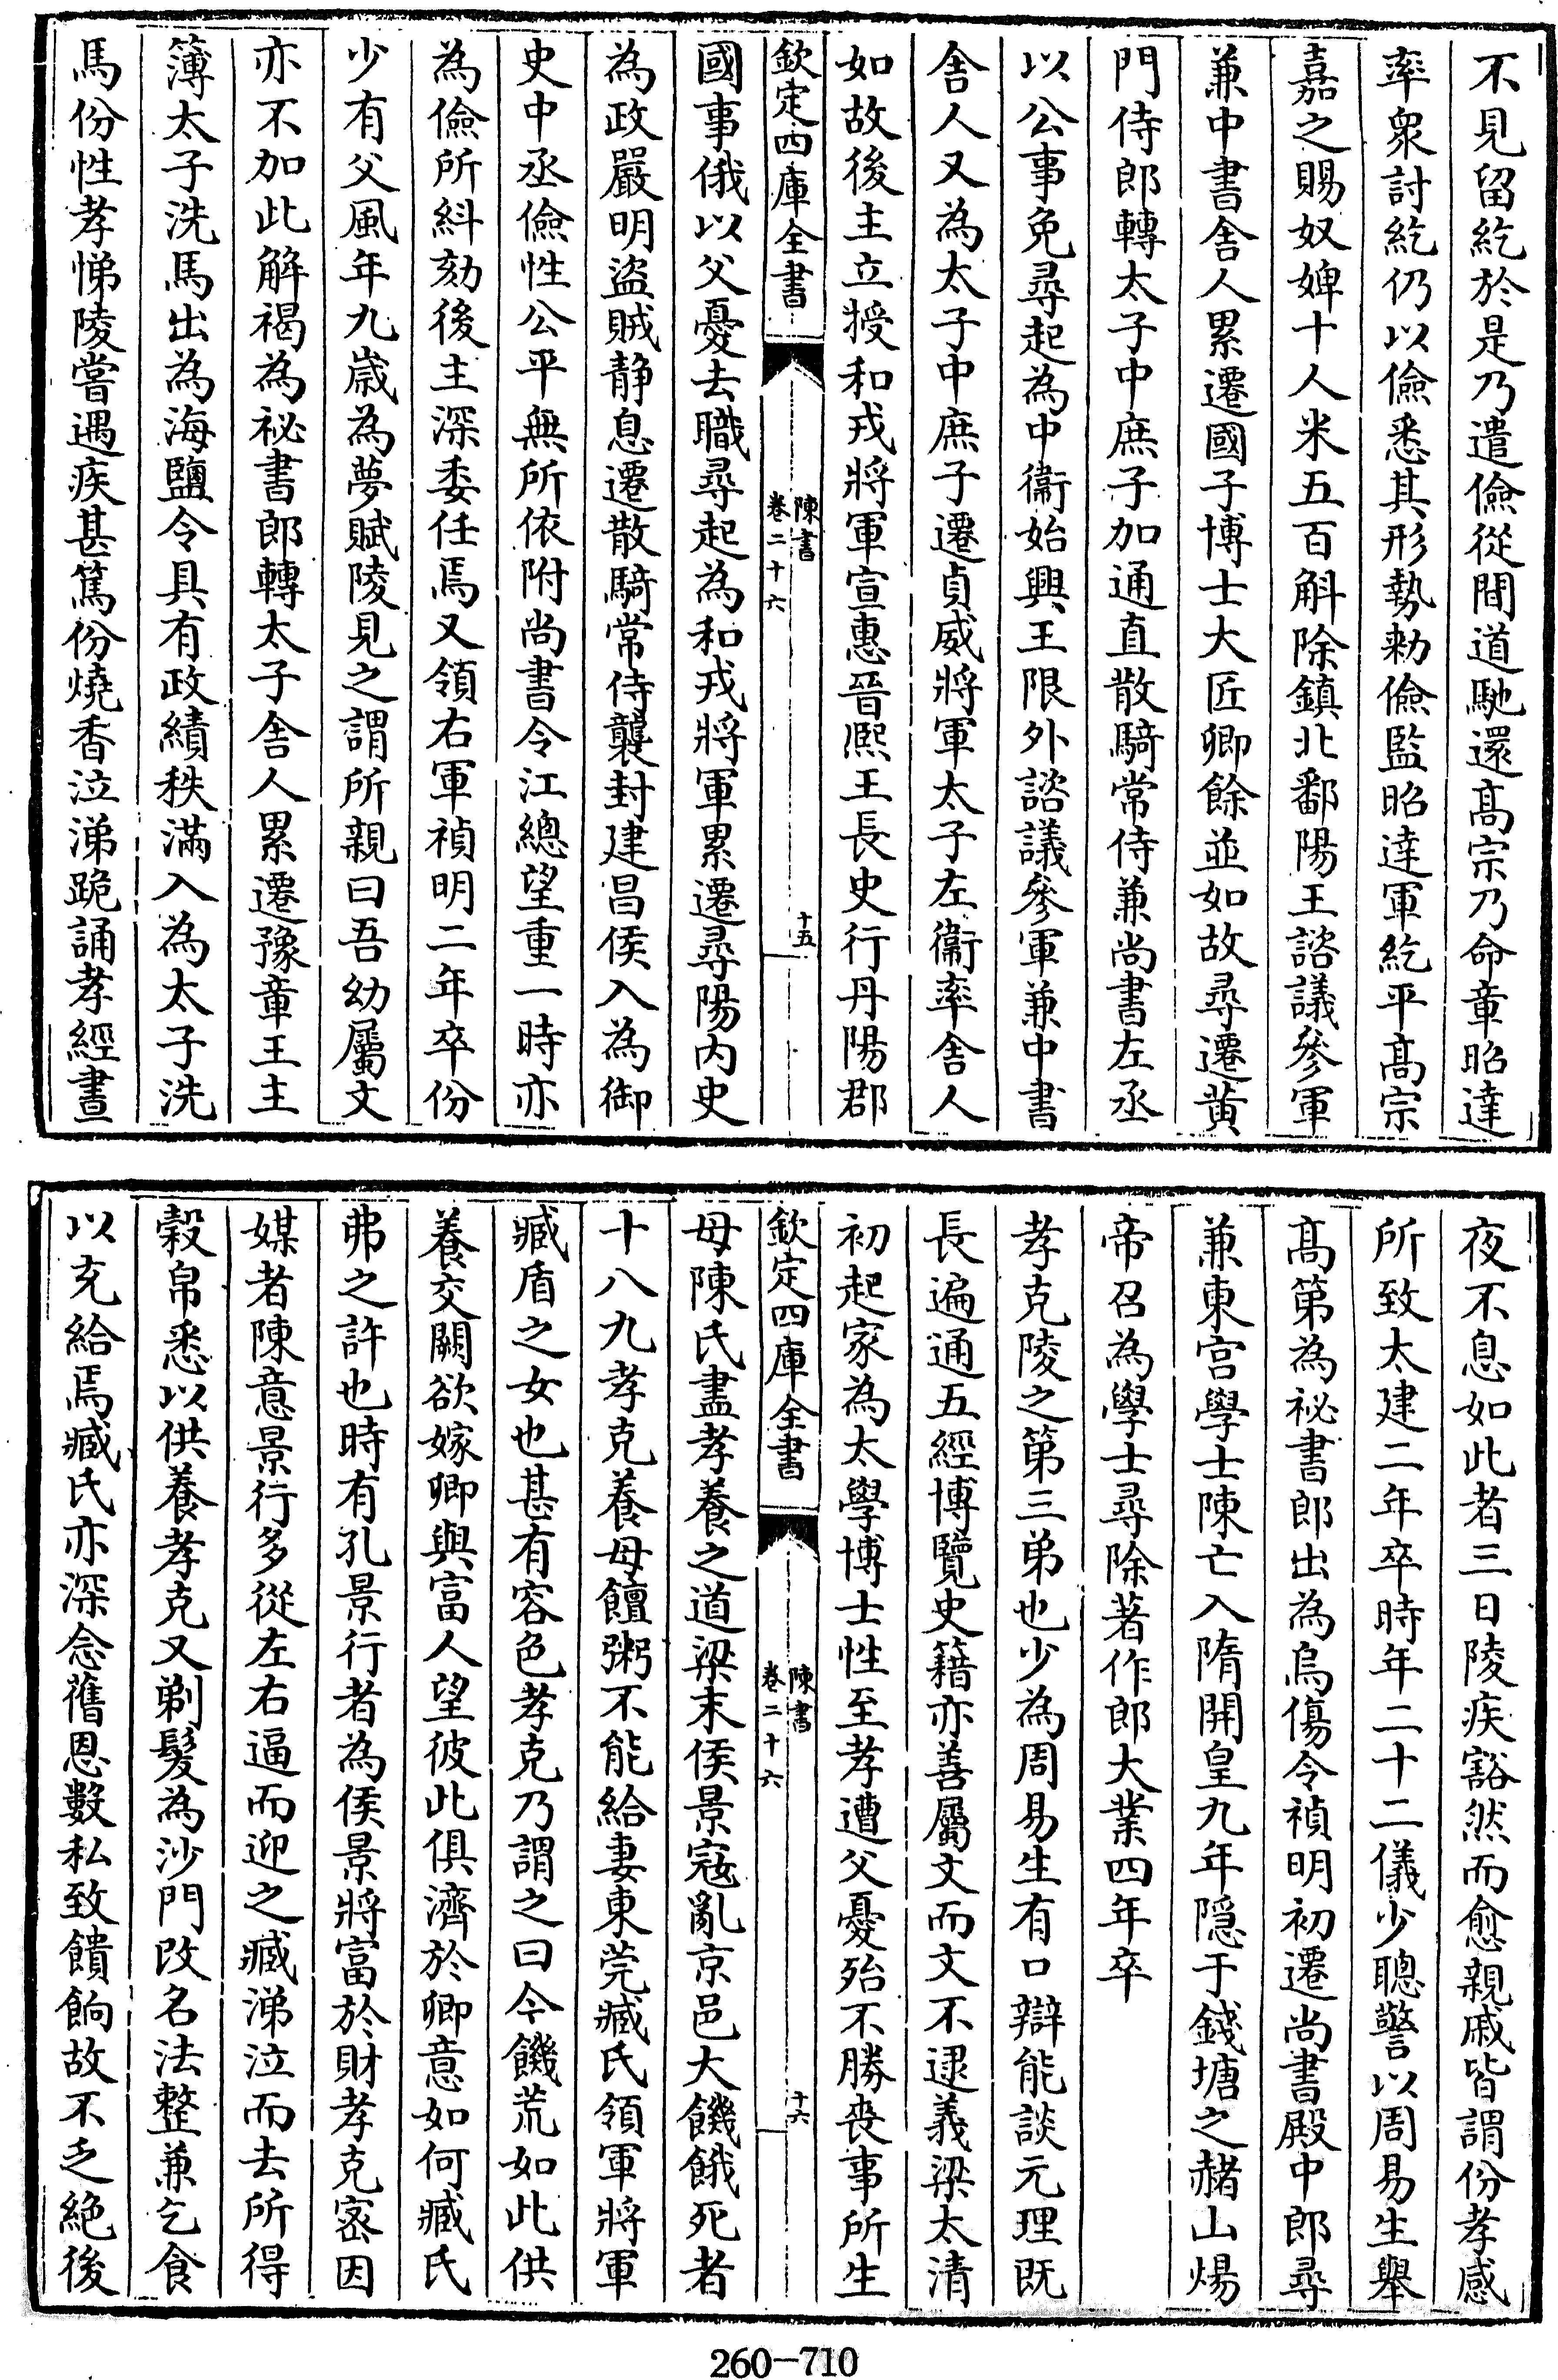 不見留紇於是乃遣儉從間道馳還髙宗乃命章昭達
率衆討紇仍以儉悉其形勢勅儉監昭達軍紇平髙宗
嘉之賜奴婢十人米五百斛除鎮北鄱陽王諮議參軍
兼中書舎人累遷國子博士大匠卿餘並如故尋遷黄
門侍郎轉太子中庶子加通直散騎常侍兼尚書左丞
以公事免尋起為中衞始興王限外諮議參軍兼中書
舎人又為太子中庶子遷貞威將軍太子左衞率舎人
如故後主立授和戎將軍宣惠晉熈王長史行丹陽郡
欽定四庫全書
陳書
卷二十六
十五
國事俄以父憂去職尋起為和戎將軍累遷尋陽内史
為政嚴明盗賊静息遷散騎常侍襲封建昌侯入為御
史中丞儉性公平無所依附尚書令江總望重一時亦
為儉所糾劾後主深委任焉又領右軍禎明二年卒份
少有父風年九嵗為夢賦陵見之謂所親曰吾幼屬文
亦不加此解褐為祕書郎轉太子舎人累遷豫章王主
簿太子洗馬出為海鹽令具有政績秩滿入為太子洗
馬份性孝悌陵嘗遇疾甚篤份燒香泣涕跪誦孝經晝
夜不息如此者三日陵疾豁然而愈親戚皆謂份孝感
所致太建二年卒時年二十二儀少聰警以周易生舉
髙第為祕書郎出為烏傷令禎明初遷尚書殿中郎尋
兼東宫學士陳亡入隋開皇九年隠于錢塘之赭山煬
帝召為學士尋除著作郎大業四年卒
孝克陵之第三弟也少為周易生有口辯能談元理既
長遍通五經博覽史籍亦善屬文而文不逮義梁太清
初起家為太學博士性至孝遭父憂殆不勝喪事所生
欽定四庫全書
陳書
卷二十六
十六
母陳氏盡孝養之道梁末侯景寇亂京邑大饑餓死者
十八九孝克養母饘粥不能給妻東莞臧氏領軍將軍
臧盾之女也甚有容色孝克乃謂之曰今饑荒如此供
養交闕欲嫁卿與富人望彼此俱濟於卿意如何臧氏
弗之許也時有孔景行者為侯景將富於財孝克宻因
媒者陳意景行多從左右逼而迎之臧涕泣而去所得
榖帛悉以供養孝克又剃髮為沙門改名法整兼乞食
以充給焉臧氏亦深念舊恩數私致饋餉故不乏絶後
260-710